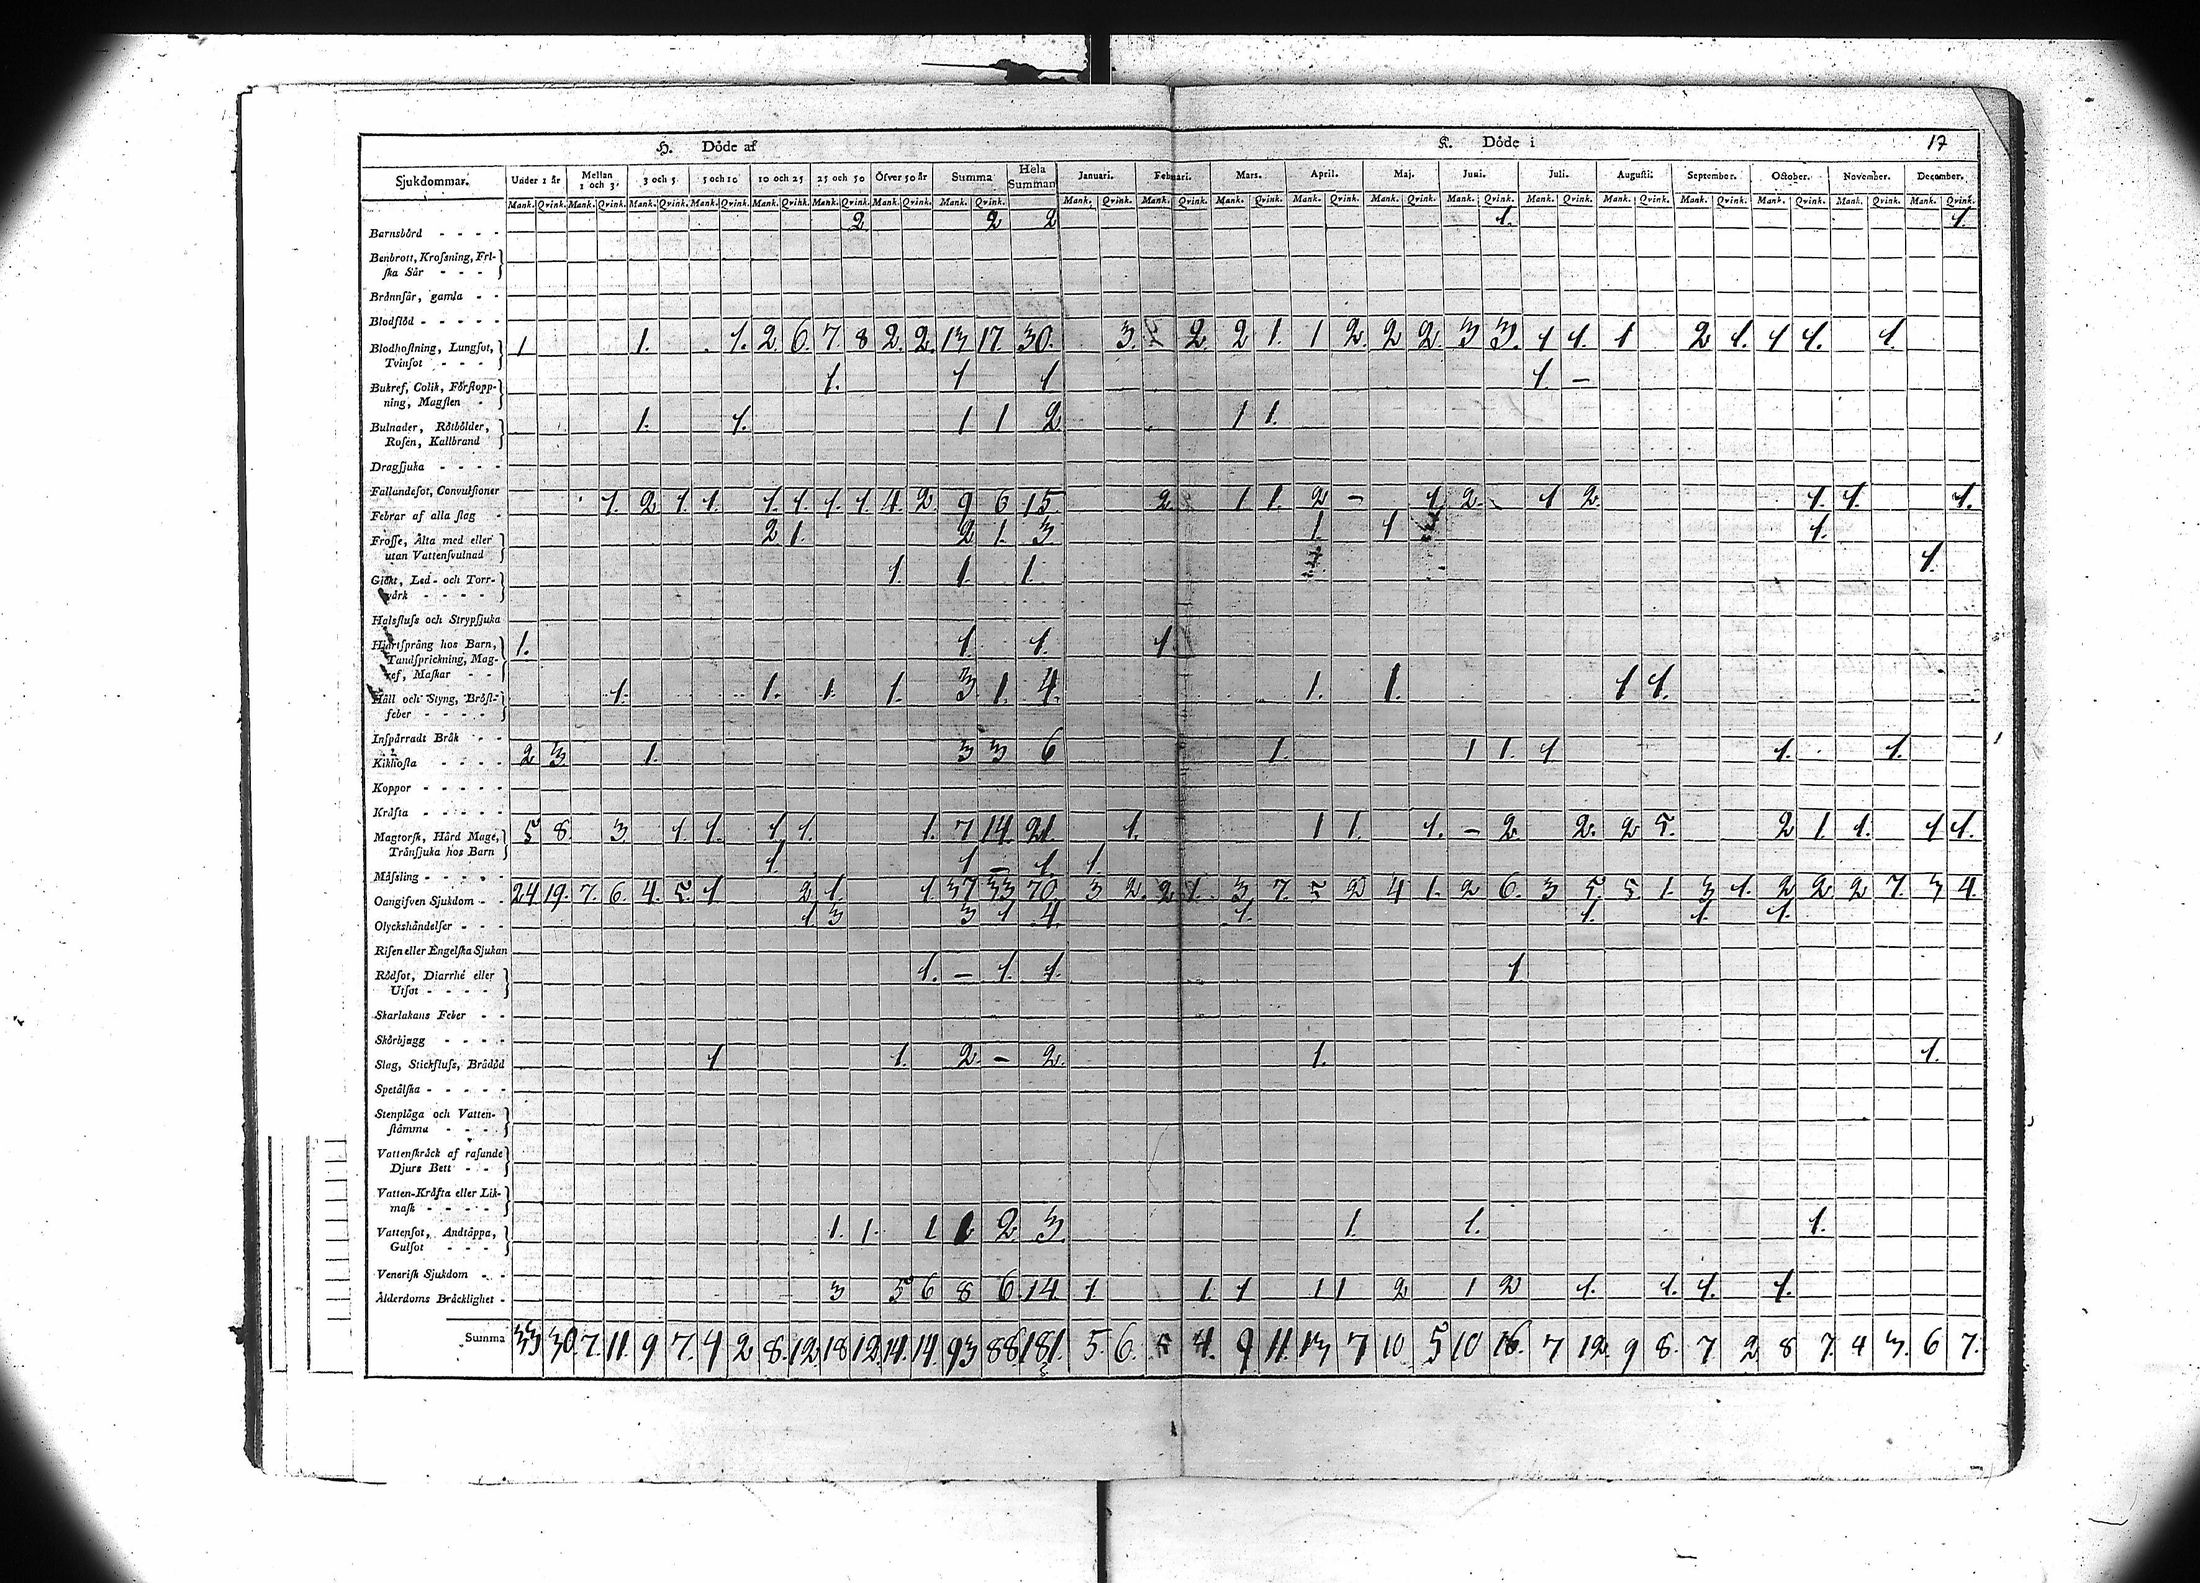 H. Döde af K. Döde i 17
Sjukdommar. Under 1 år Mellan 1 och 3. 3 och 5 5 och 10 10 och 25 25 och 50 Öfver 50 år Summa Hela Summan Januari. Februari. Mars. April. Maj. Juni. Juli. Augusti. September. October. November. December.
Mank. Qvink. Mank. Qvink. Mank. Qvink. Mank. Qvink. Mank. Qvink. Mank. Qvink. Mank. Qvink. Mank. Qvink. Mank. Qvink. Mank. Qvink. Mank. Qvink. Mank. Qvink. Mank. Qvink. Mank. Qvink. Mank. Qvink. Mank. Qvink. Mank. Qvink. Mank. Qvink. Mank. Qvink. Mank. Qvink.
Barnsbörd 2 2 2 1. 1.
Benbrott, Krossning, Fri-
ska Sår
Brännsår, gamla
Blodflöd
Blodhostning, Lungsot, 1 1. 1. 2 6. 7 8 2. 2. 13 17. 30. 3. 2. 2 1. 1 2. 2 2. 3 3. 1 1. 1 2 1. 1 1. 1.
Tvinsot
Bukref, Colik, Förstopp- 1. 1 1 1. –
ning, Magsten
Bulnader, Rötbölder, 1. 1. 1 1 2 1 1.
Rosen, Kallbrand
Dragsjuka
Fallandesot, Convulsioner
Febrar af alla slag 1. 2 1. 1. 1. 1. 1. 1 4. 2 9 6 15. 2. 1 1. 2 – 1. 2. 1 2. 1. 1. 1.
Frosse, Älta med eller 2 1. 2 1. 3. 1. 1 1.
utan Vattensvulnad
Gickt, Led- och Torr- 1. 1. 1. 1.
värk
Halsfluss och Strypsjuka
Hjertsprång hos Barn, 1. 1. 1. 1.
Tandsprickning, Mag-
ref, Maskar
Håll och Styng, Bröst- 1. 1. 1. 1. 3 1. 4. 1. 1. 1 1.
feber
Inspärradt Bråk
Kikhosta 2 3. 1. 3 3 6 1. 1 1. 1 1. 1.
Koppor
Kräfta
Magtorsk, Hård Mage, 5 8. 3. 1. 1. 1. 1. 1. 7 14. 21 1. 1 1. 1. – 2. 2. 2 2 1. 1. 1 1.
Trånsjuka hos Barn
Mässling 1. 1 – 1. 1.
Oangifven Sjukdom 24 19. 7. 6. 4. 5. 1 2 1. 1. 37 33 70. 3 2. 2 1. 3 7. 5 2 4 1. 2 6. 3 5. 5. 1. 3 1. 2 2. 2 7. 3 4.
Olyckshändelser 1 3 3 1 4. 1. 1. 1. 1.
Risen eller Engelska Sjukan
Rödsot, Diarrhé eller 1. – 1. 1. 1.
Utsot
Skarlakans Feber
Skörbjugg
Slag, Stickfluss, Brådöd 1 1. 2. – 2. 1. 1.
Spetälska
Stenplåga och Vatten-
stämma
Vattenskräck af rasande
Djurs Bett
Vatten-Kräfta eller Lik-
mask
Vattensot, Andtäppa, 1. 1. 1 1 2 3. 1. 1. 1.
Gulsot
Venerisk Sjukdom
Ålderdoms Bräcklighet 3 5 6 8 6. 14. 1 1. 1 1 1 2 1 2 1. 1. 1. 1.
Summa 33 30. 7. 11. 9 7. 4 2 8. 12 18 12. 14. 14. 93 88 181. 5. 6. 5 4. 9 11. 13 7 10 5 10 16. 7 12. 9 8. 7 2 8 7. 4 3. 6 7.